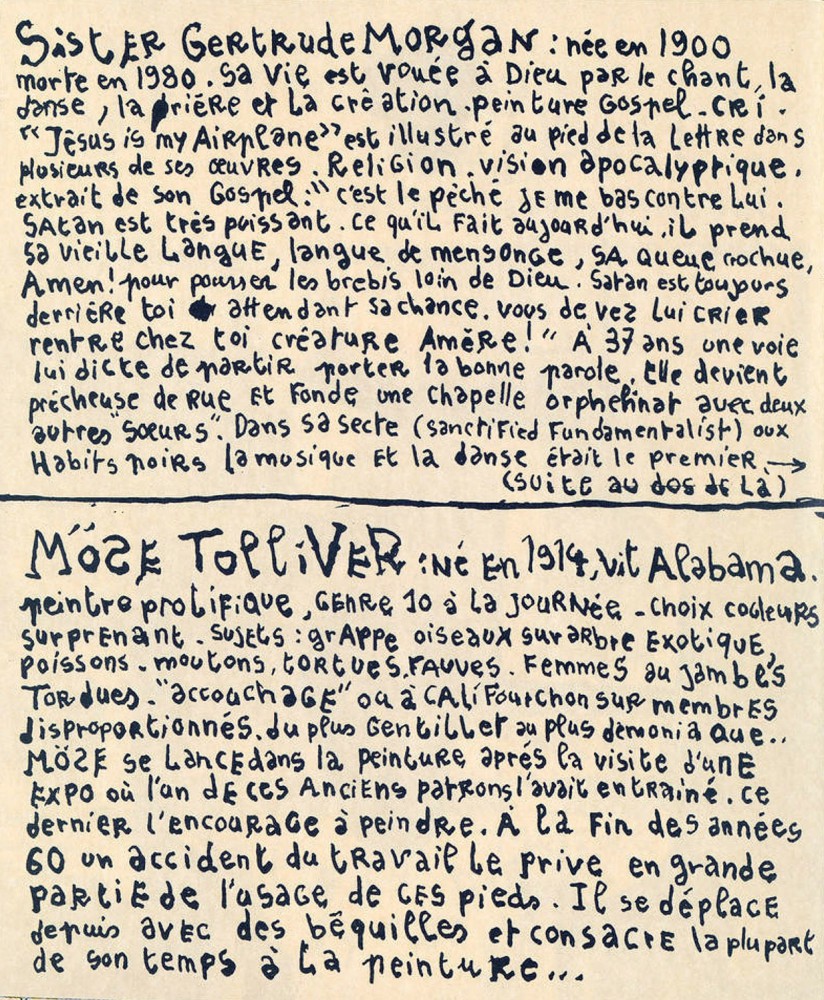 Sister Gertrude Morgan : née en 1900
morte en 1980. Sa vie est vouée à Dieu par le chant, la
danse, la prière et la création. peinture Gospel. cri.
"Jesus is my Airplane" est illustré au pied de la lettre dans
plusieurs de ses œuvres. Religion. vision apocalyptique.
extrait de son Gospel : "c'est le péché je me bas contre lui.
Satan est très puissant. Ce qu'il fait aujourd'hui, il prend
sa vieille langue, langue de mensonge, sa queue crochue,
Amen! pour pousser les brebis loin de Dieu. Satan est toujours
derrière toi attendant sa chance. vous devez lui crier
rentre chez toi créature Amère!" A 37 ans une voie
lui dicte de partir porter la bonne parole. Elle devient
prêcheuse de rue et fonde une chapelle orphelinat avec deux
autres "Sœurs". Dans sa secte (sanctified Fundamentalist) aux
Habits noirs la musique et la danse était le premier →
(suite au dos de là)
Möse Tolliver : né en 1914, vit Alabama.
peintre prolifique, genre 10 à la journée - choix couleurs
surprenant. sujets : grappe oiseaux sur arbre exotique,
poissons - moutons, tortues, fauves. Femmes au jambes
tordues. "accouchage" ou à califourchon sur membres
disproportionnés. du plus gentillet au plus démoniaque..
Möse se lance dans la peinture après la visite d'une
expo où l'un de ces anciens patrons l'avait entrainé. ce
dernier l'encourage à peindre. À la fin des années
60 un accident du travail le prive en grande
partie de l'usage de ces pieds. Il se déplace
depuis avec des béquilles et consacre la plupart
de son temps à la peinture...